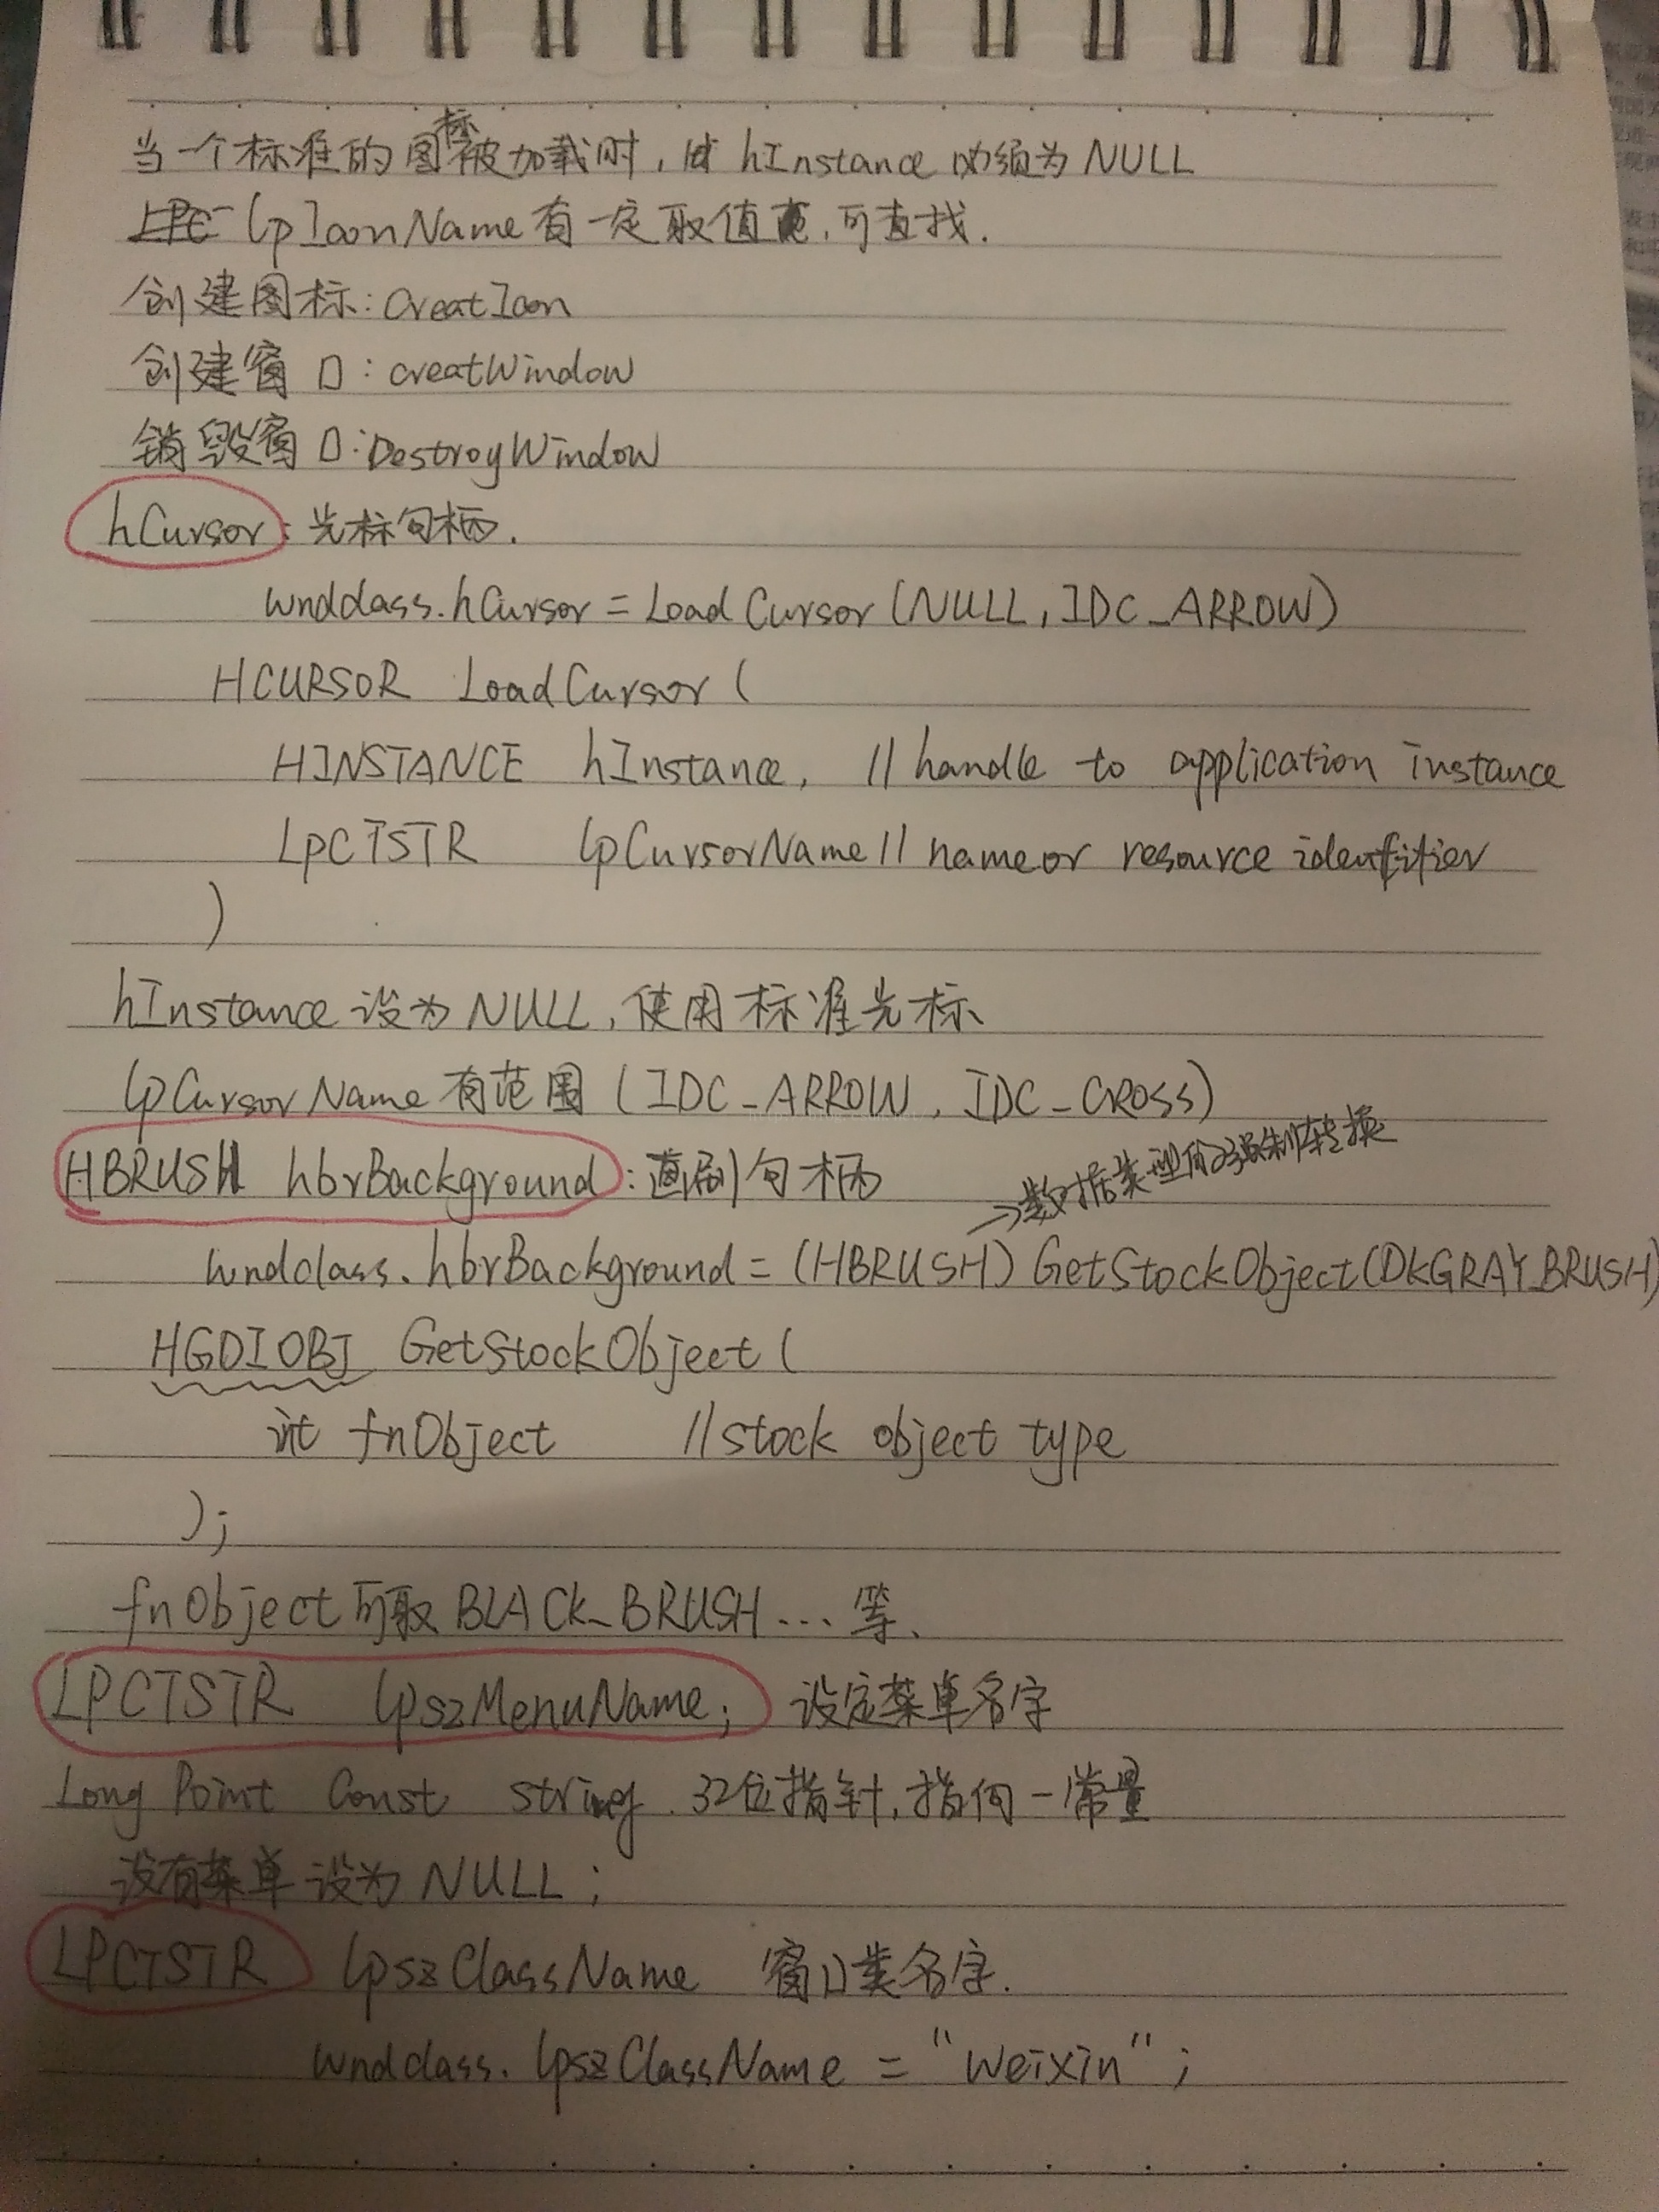 当一个标准的图标被加载时，hInstance必须为NULL
LPC lpIconName有一定取值，可查找.
创建图标：CreatIcon
创建窗口：creatWindow
销毁窗口：DestroyWindow
hCursor：光标句柄.
wndclass.hCursor = LoadCursor(NULL, IDC_ARROW)
HCURSOR LoadCursor(
HINSTANCE hInstance, //handle to application instance
LpCTSTR lpCursorName // name or resource identifier
)
hInstance设为NULL，使用标准光标
lpCursorName有范围(IDC_ARROW, IDC_CROSS)
HBRUSH hbrBackground：画刷句柄
→数据类型的强制转换
wndclass.hbrBackground = (HBRUSH) GetStockObject(DKGRAY_BRUSH)
HGDIOBJ GetStockObject(
int fnObject //stock object type
);
fnObject可取BLACK_BRUSH...等、
LPCTSTR lpszMenuName; 设定菜单名字
Long Point Const string. 32位指针，指向一常量
没有菜单设为NULL;
LPCTSTR lpszClassName 窗口类名字.
wndclass.lpszClassName = "Weixin";